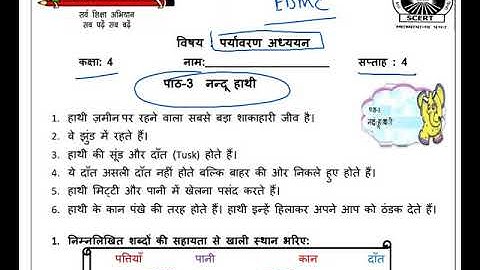 EDMC
सर्व शिक्षा अभियान
सब पढ़ें सब बढ़ें
SCERT
विषय : पर्यावरण अध्ययन
कक्षा: 4 नाम: सप्ताह : 4
पाठ-3 नन्दू हाथी
1. हाथी ज़मीन पर रहने वाला सबसे बड़ा शाकाहारी जीव है।
2. वे झुंड में रहते हैं।
3. हाथी की सूंड और दाँत (Tusk) होते हैं।
4. ये दाँत असली दाँत नहीं होते बल्कि बाहर की ओर निकले हुए होते हैं।
5. हाथी मिट्टी और पानी में खेलना पसंद करते हैं।
6. हाथी के कान पंखे की तरह होते हैं। हाथी इन्हें हिलाकर अपने आप को ठंडक देते हैं।
1. निम्नलिखित शब्दों की सहायता से खाली स्थान भरिए:
पत्तियाँ पानी कान दाँत